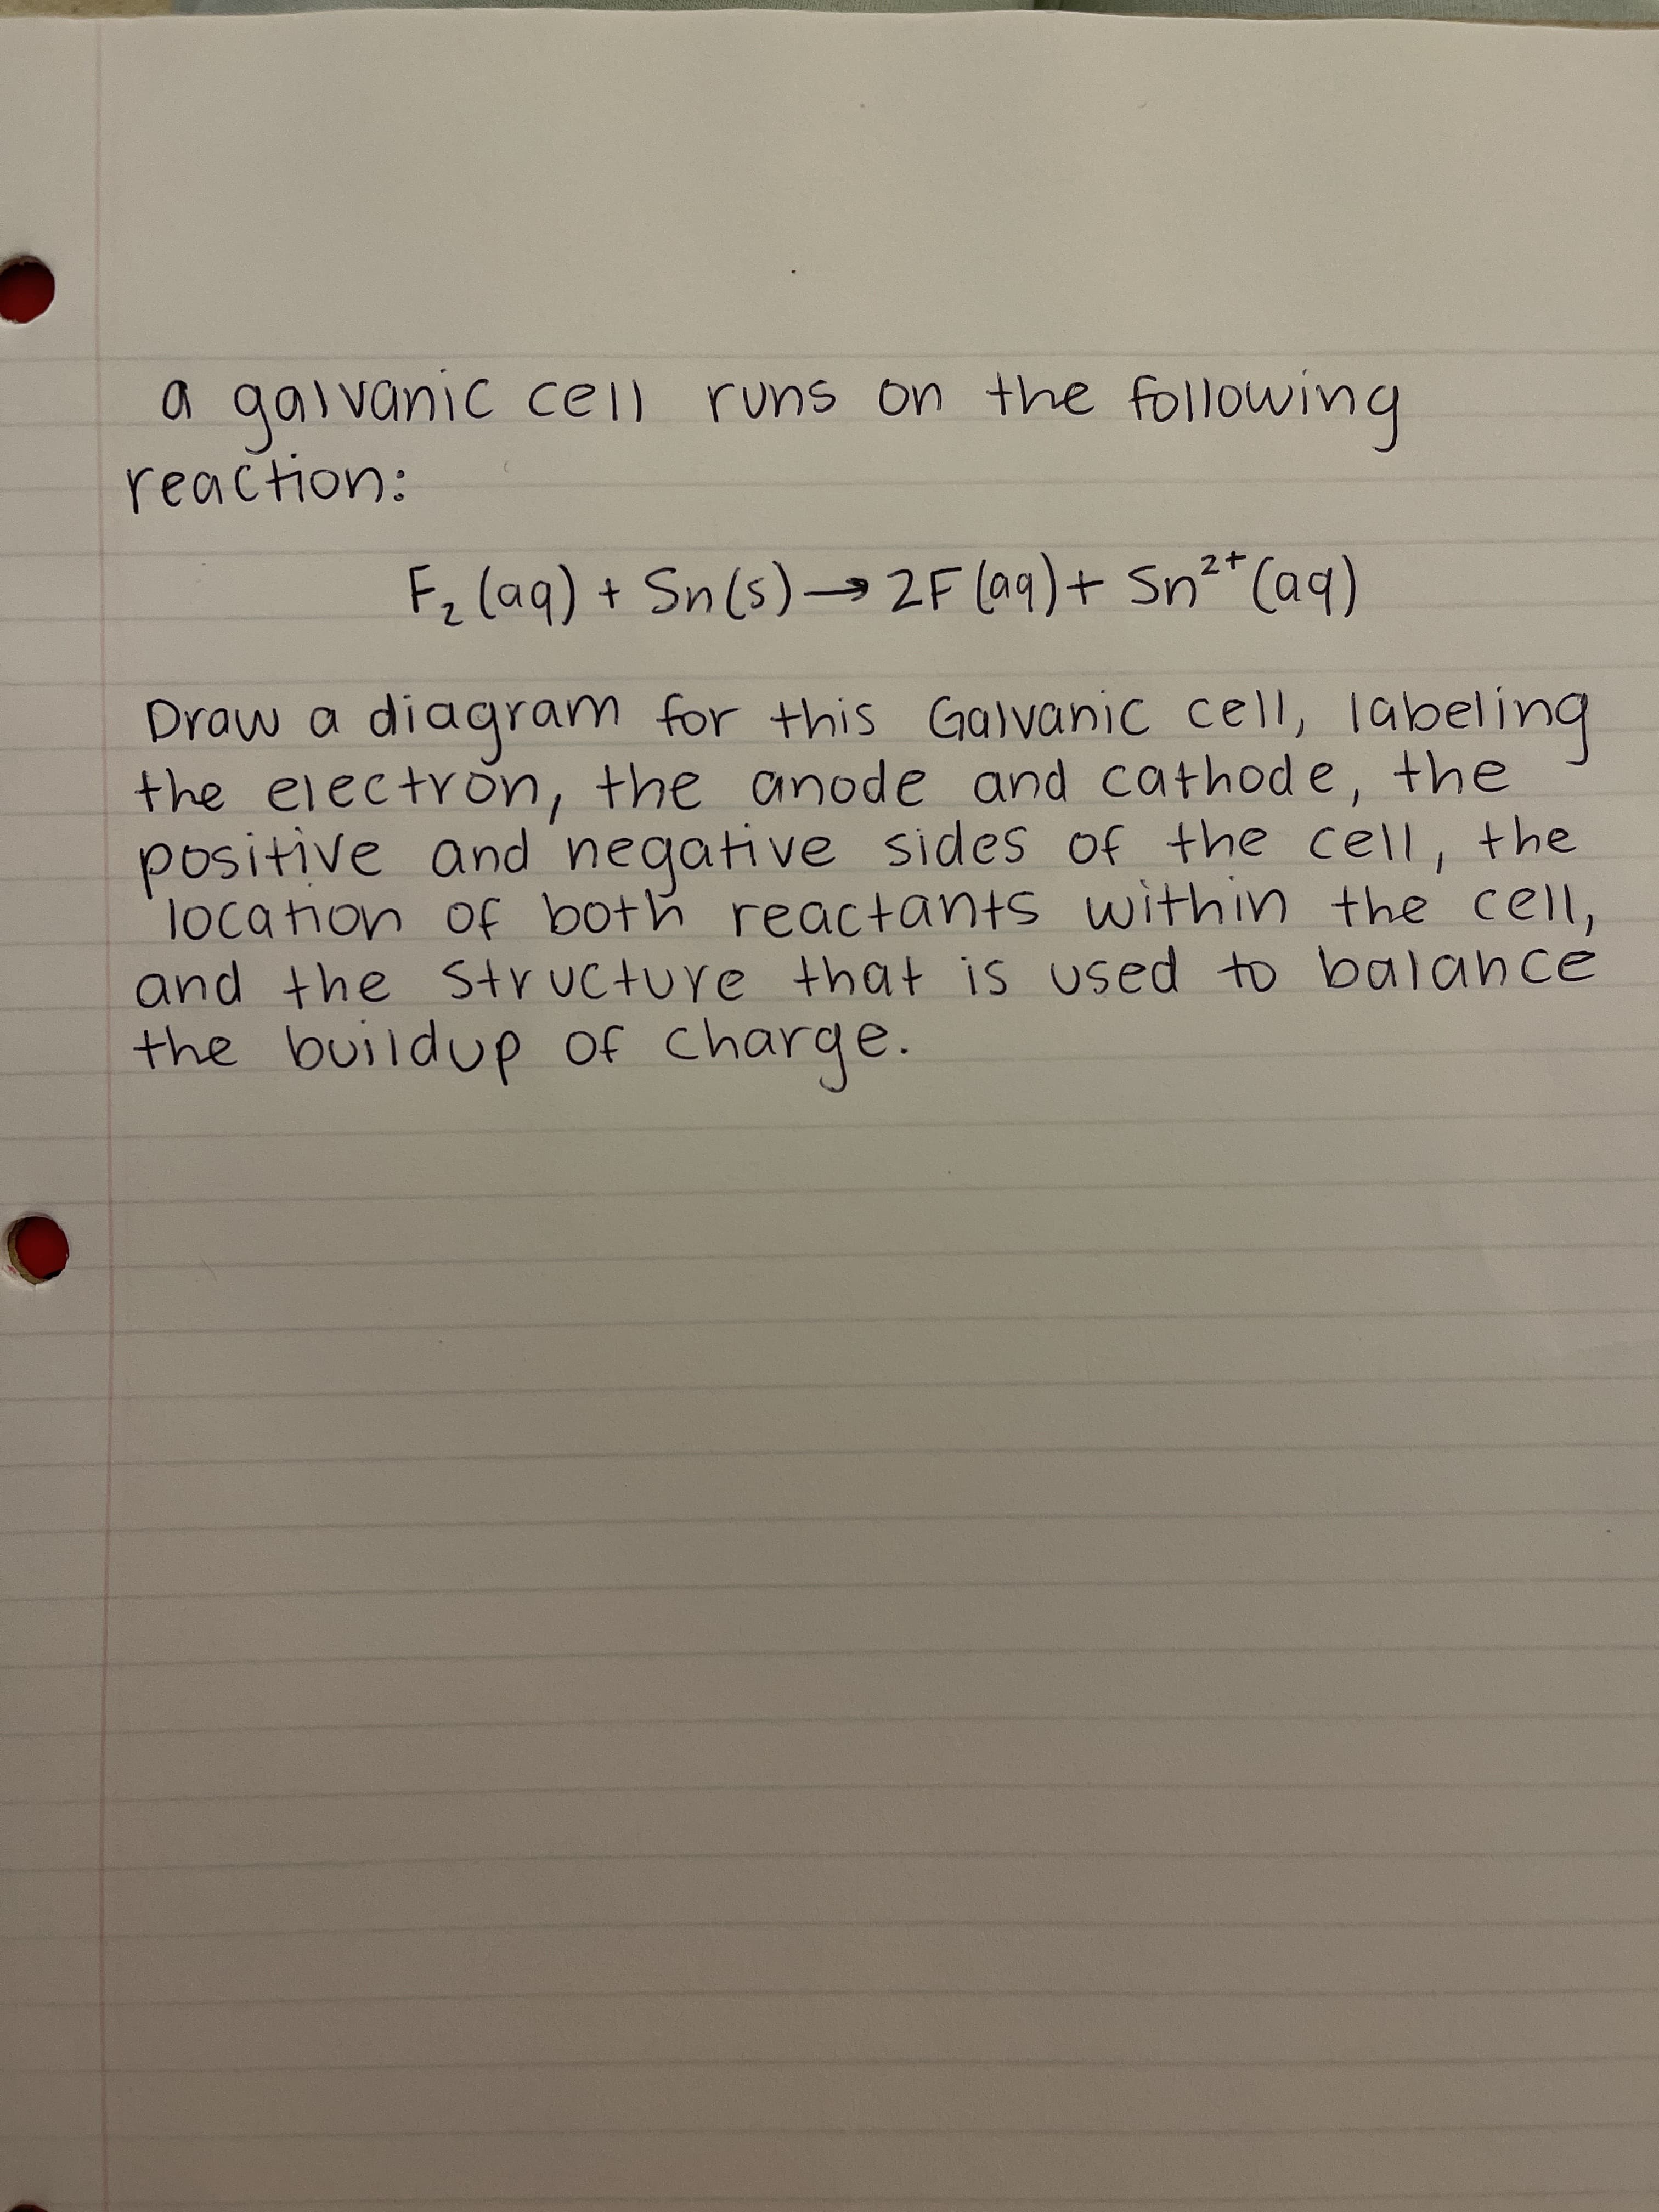 a galvanic cell runs on the following
reaction:
F₂ (aq) + Sn(s) → 2F (aq) + Sn²⁺ (aq)
Draw a diagram for this Galvanic cell, labeling
the electron, the anode and cathode, the
positive and negative sides of the cell, the
location of both reactants within the cell,
and the structure that is used to balance
the buildup of charge.